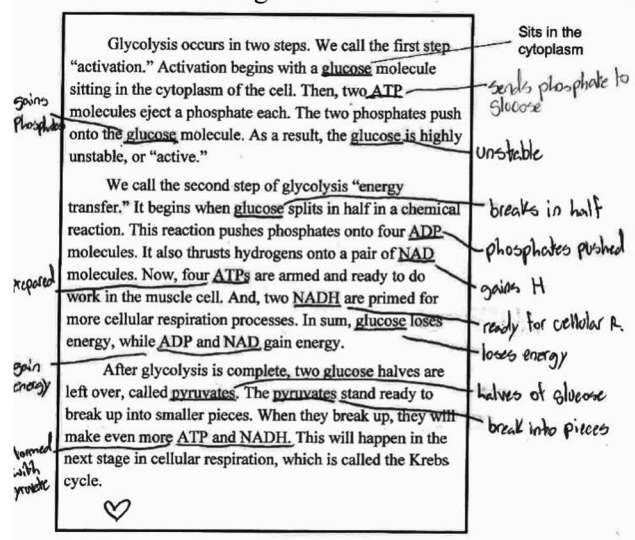 Glycolysis occurs in two steps. We call the first step
"activation." Activation begins with a glucose molecule
sitting in the cytoplasm of the cell. Then, two ATP
molecules eject a phosphate each. The two phosphates push
onto the glucose molecule. As a result, the glucose is highly
unstable, or "active."
We call the second step of glycolysis "energy
transfer." It begins when glucose splits in half in a chemical
reaction. This reaction pushes phosphates onto four ADP
molecules. It also thrusts hydrogens onto a pair of NAD
molecules. Now, four ATPs are armed and ready to do
work in the muscle cell. And, two NADH are primed for
more cellular respiration processes. In sum, glucose loses
energy, while ADP and NAD gain energy.
After glycolysis is complete, two glucose halves are
left over, called pyruvates. The pyruvates stand ready to
break up into smaller pieces. When they break up, they will
make even more ATP and NADH. This will happen in the
next stage in cellular respiration, which is called the Krebs
cycle.
Sits in the
cytoplasm
sends phosphate to
glucose
unstable
breaks in half
phosphates pushed
gains H
ready for cellular R.
loses energy
halves of glucose
break into pieces
gains
Phosphates
prepared
gain
energy
formed
with